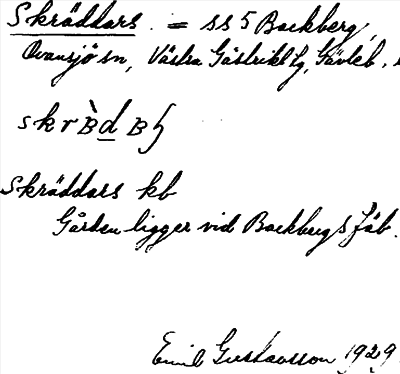 Skräddars = ss 5 Backberg,
Ovansjö sn, Västra Gästrikl. tg, Gävleb.
Skräddars kb
Gården ligger vid Backbergs fäb.
Emil Gustavsson 1929